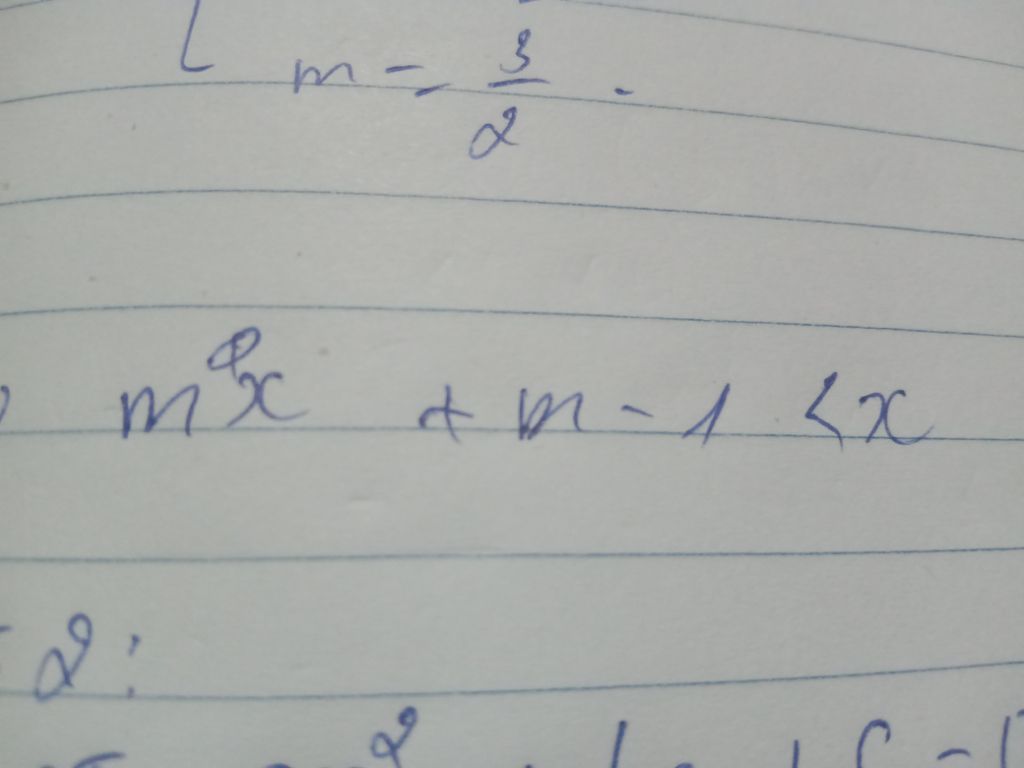 m = 3/2 .
m²x + m - 1 < x
2 :
2